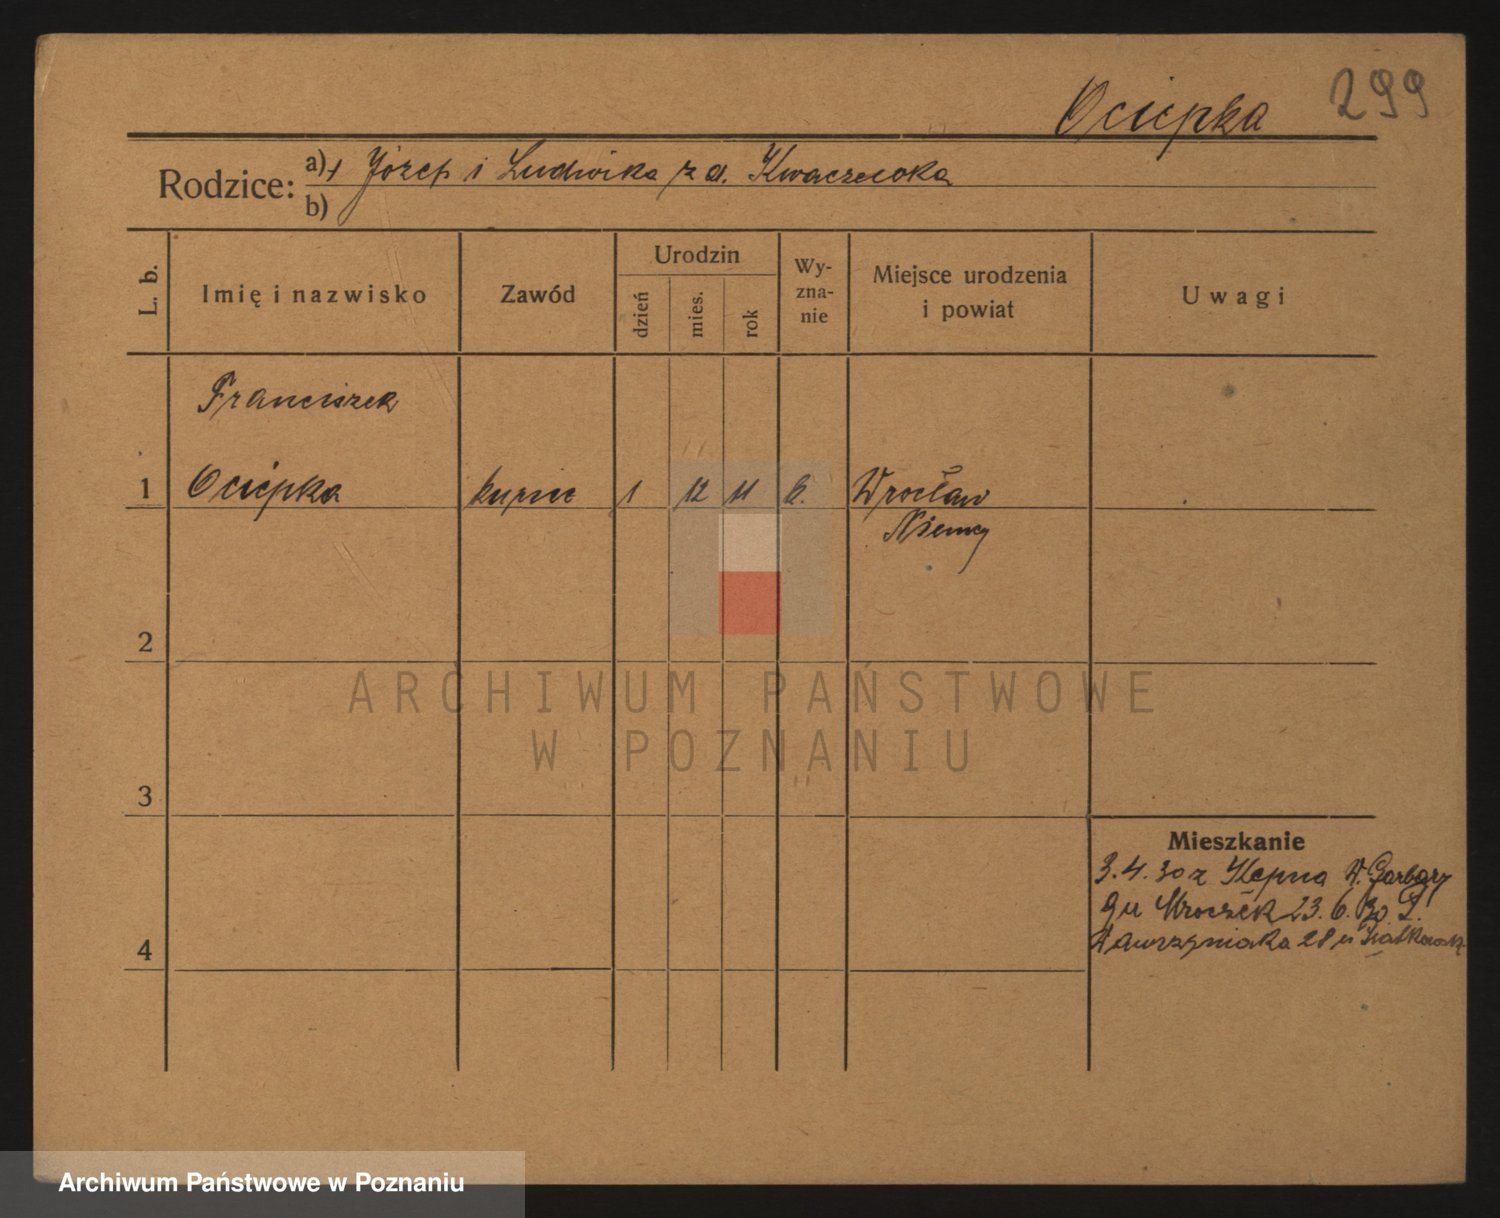 Ociepka 299
Rodzice: a) Józef i Ludwika z d.
b)
L. b.
Imię i nazwisko
Zawód
Urodzin
dzień
mies.
rok
Wy-
zna-
nie
Miejsce urodzenia
i powiat
Uwagi
Franciszek
1 Ociepka kupiec 1 12 11 k. Wrocław
Niemcy
2
3
4
Mieszkanie
3.4.30 z Kępna W. Garbary
9 u Mroczek 23.6.30 Pl.
Wawrzyniaka 28 u
ARCHIWUM PAŃSTWOWE
W POZNANIU
Archiwum Państwowe w Poznaniu